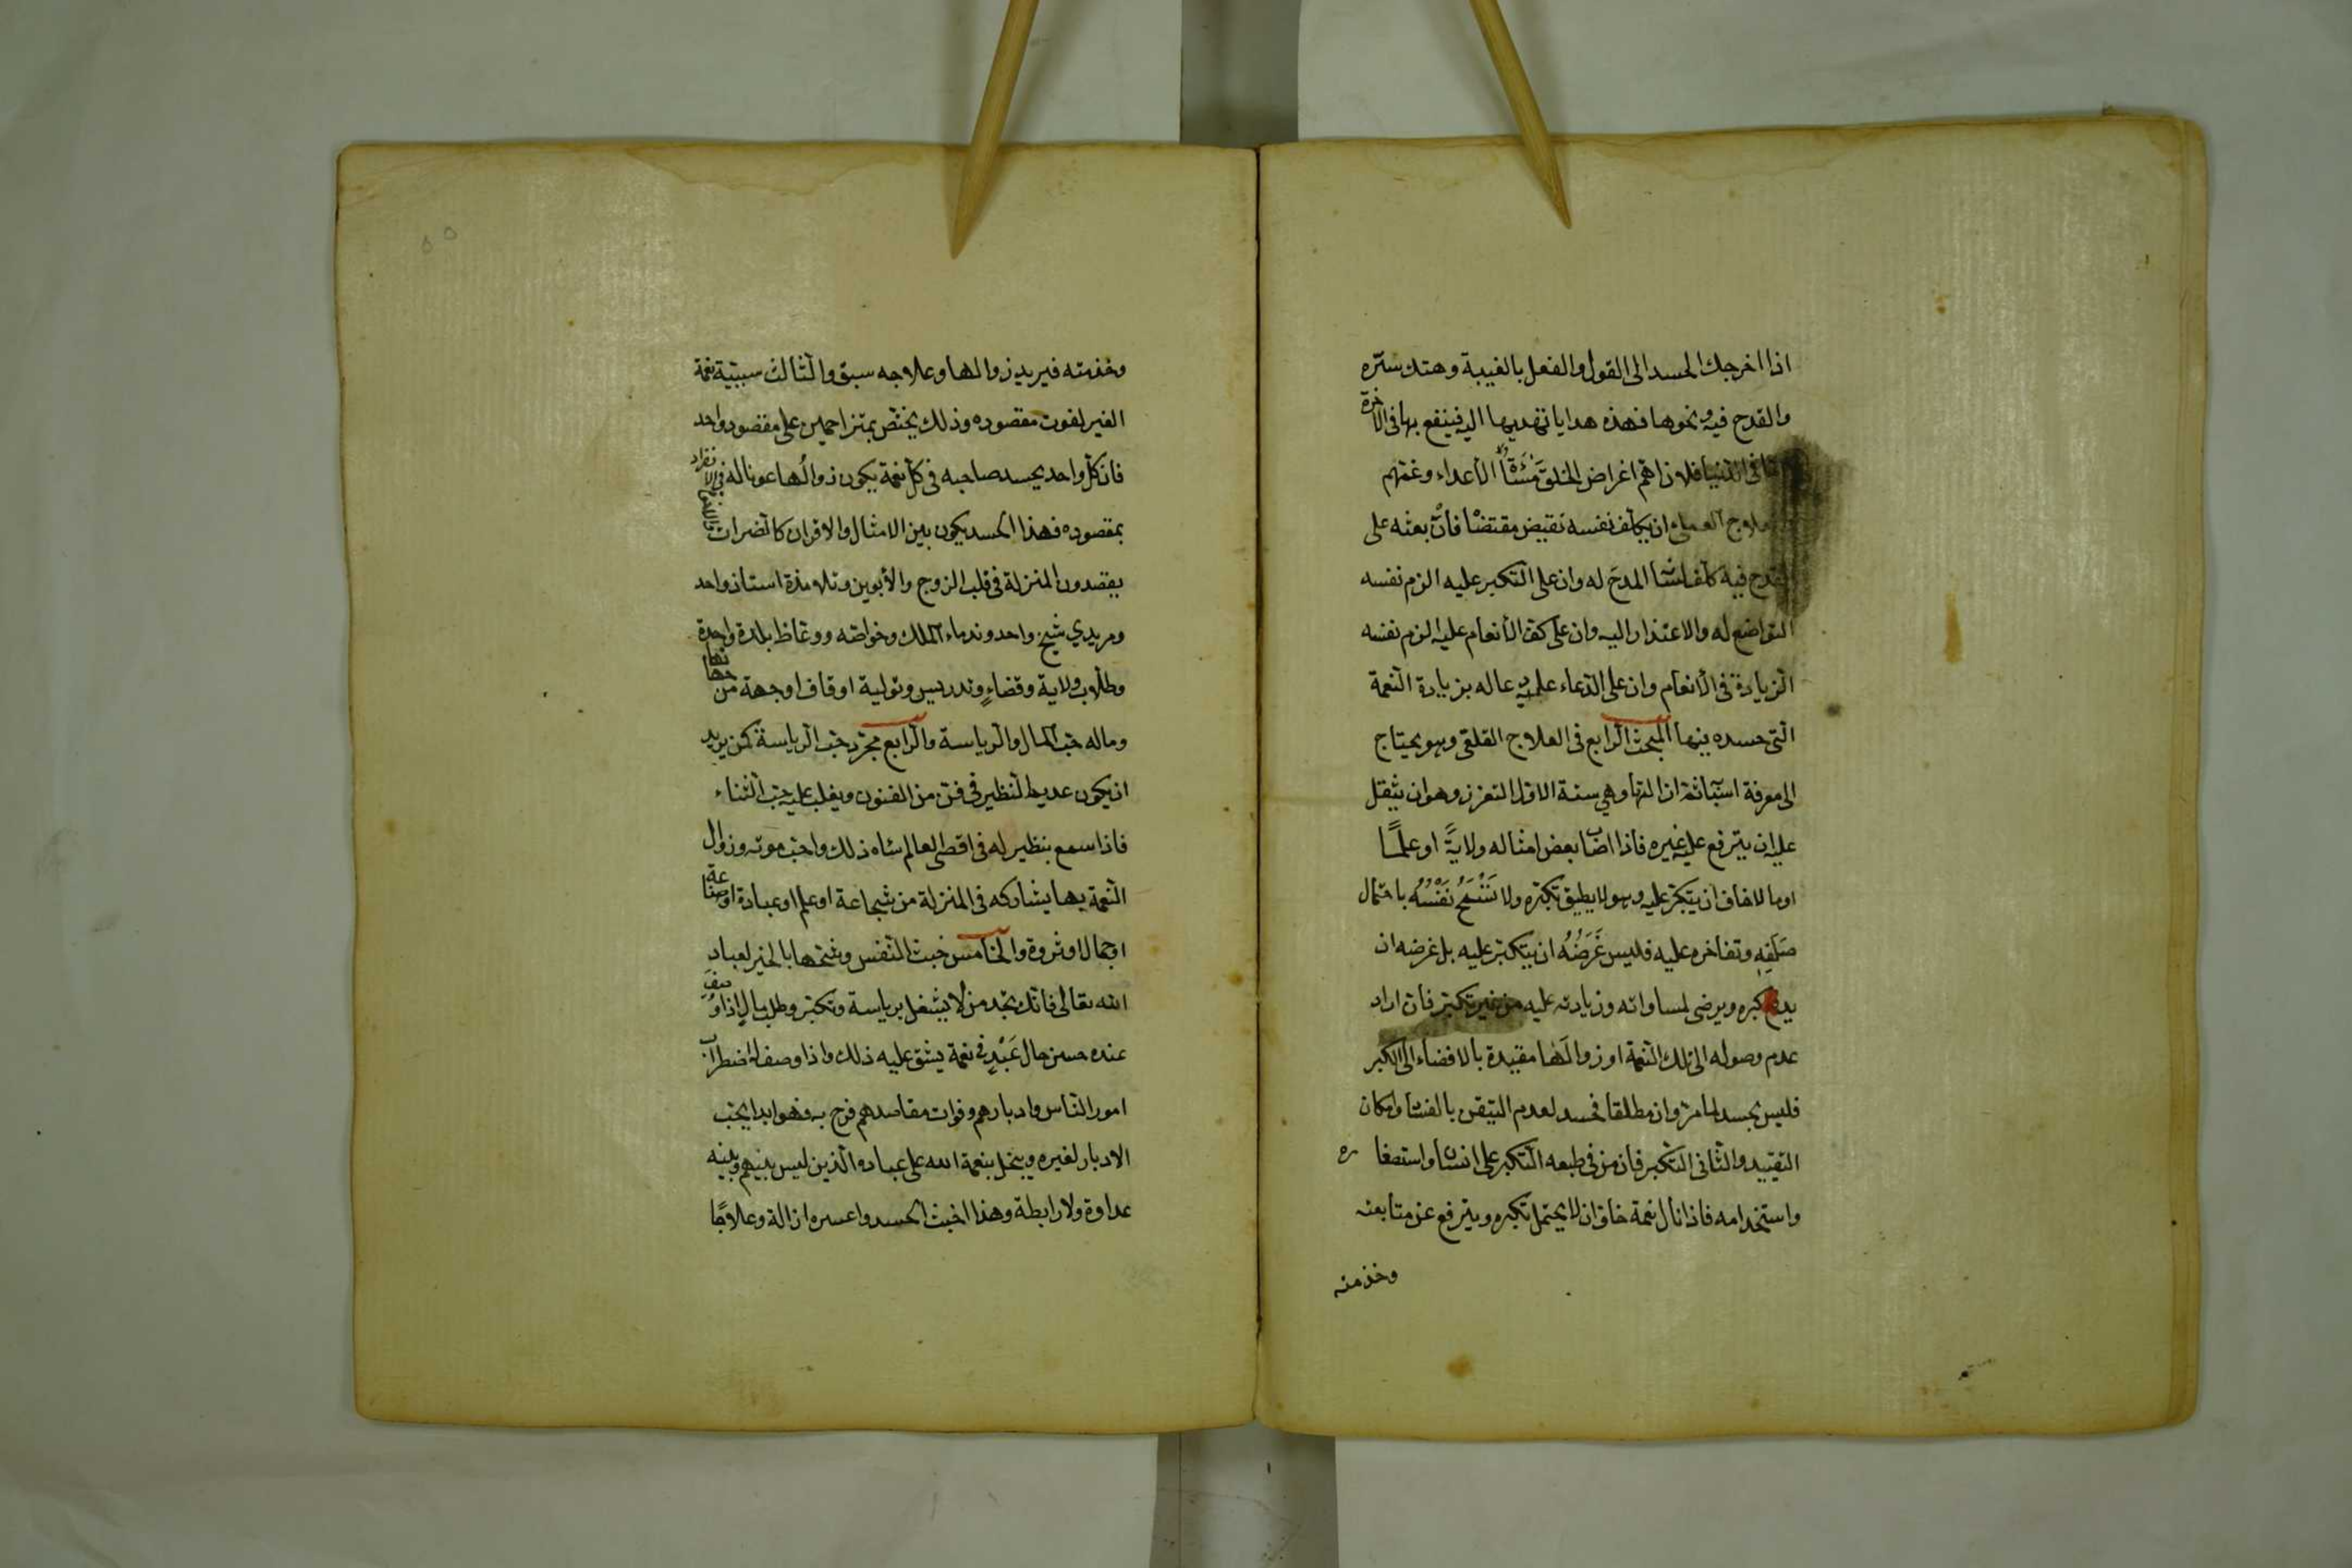 اذا اخرجك الحسد الى القول والفعل بالغيبة وهتك ستره
والقدح فيه ونحوها فهذه هدايا تهديها اليه فينفع بها فى الآخرة
فى الدنيا فلان اهم اغراض الخلق مَسَٓاءَةُ الأعداء وغمّهم
العملى ان يكلّف نفسه نقيض مقتضا فان بعثه على
القدح فيه كلّف لسا المدحَ له وان على التكبر عليه الزم نفسه
التواضع له والاعتذار اليه وان على كف الأنعام عليه الزم نفسه
الزيادة فى الأنعام وان على الدّعاء عليه دعا له بزيادة النّعمة
الّتى حسده بينها المبحث الرّابع فى العلاج القلقى وهو يحتاج
الى معرفة اسبابه ثمّ ازالتها وهي ستة الاوّل التعزز وهو ان يثقل
عليه ان يترفع عليه غيره فاذا اصاب بعض امثاله ولايةً او علمًا
او مالا خاف ان يتكبّر عليه وهو لا يطيق تكبّره ولا تَسْمَحُ نَفْسُهُ باحتمال
صَلَفِهِ وتفاخره عليه فليس غَرَضُهُ ان يتكبّر عليه بل غرضه ان
يدفع كبره ويرضى لمساواته وزيادته عليه من غير تكبّر فان اراد
عدم وصوله الى تلك النّعمة او زوالَها مقيدة بالافضاء الى الكبر
فليس بحسد لما مرّ وان مطلقا فحسد لعدم التيقن بالفسا وامكان
التقييد والثّانى التّكبر فان من فى طبعه التّكبر على انسان واستصغا ره
واستخدامه فاذا نال نعمة خاف ان لا يحتمل تكبره ويترفع عن متابعته
وخدمته
وخدمته فيريد زوالها وعلاجه سبق والثّالث سببيّة نعمة
الغير لفوت مقصوده وذلك يختصّ بمتزاحمين على مقصود واحد
فان كلّ واحد يحسد صاحبه فى كلّ نعمة يكون زوالُها عونا له فى الانفراد
بمقصوده فهذا الحسد يكون بين الامثال والاقران كالضّرات
يقصدون المنزلة فى قلب الزوج والأبوين وتلامذة استاذ واحد
ومريدي شيخ واحد وندماء الملك وخواصّه ووعّاظ بلدة واحدة
وطلّاب ولاية وقضاءٍ وتدريس وتولية اوقاف او جهة من جهاتها
وماله حبّ المال والرياسة والرّابع مجرّد حبّ الرياسة كمن يريد
ان يكون عديم النّظير فى فنّ من الفنون ويغلب عليه حبّ الثّناء
فاذا سمع بنظير له فى اقصى العالم ساه ذلك واحبّ موته وزوال
النّعمة بها يشاركه فى المنزلة من شجاعة او علم او عبادة او صناعة
او جمال او ثروة والخامس خبث النّفس وشحّها بالخير لعباد
الله تعالى فانّك تجد من لا يشتغل برياسة وتكبّر وطلب مال اذا وُصِفَ
عنده حسن حال عَبْدٍ فى نعمة يشق عليه ذلك واذا وصف له اضطراب
امور النّاس وادبارهم وفوات مقاصدهم فرح به فهو ابدا يحبّ
الادبار لغيره ويبخل بنعمة الله على عباده الّذين ليس بينهم وبينه
عداوة ولا رابطة وهذا اخبث الحسد واعسره ازالة وعلاجًا